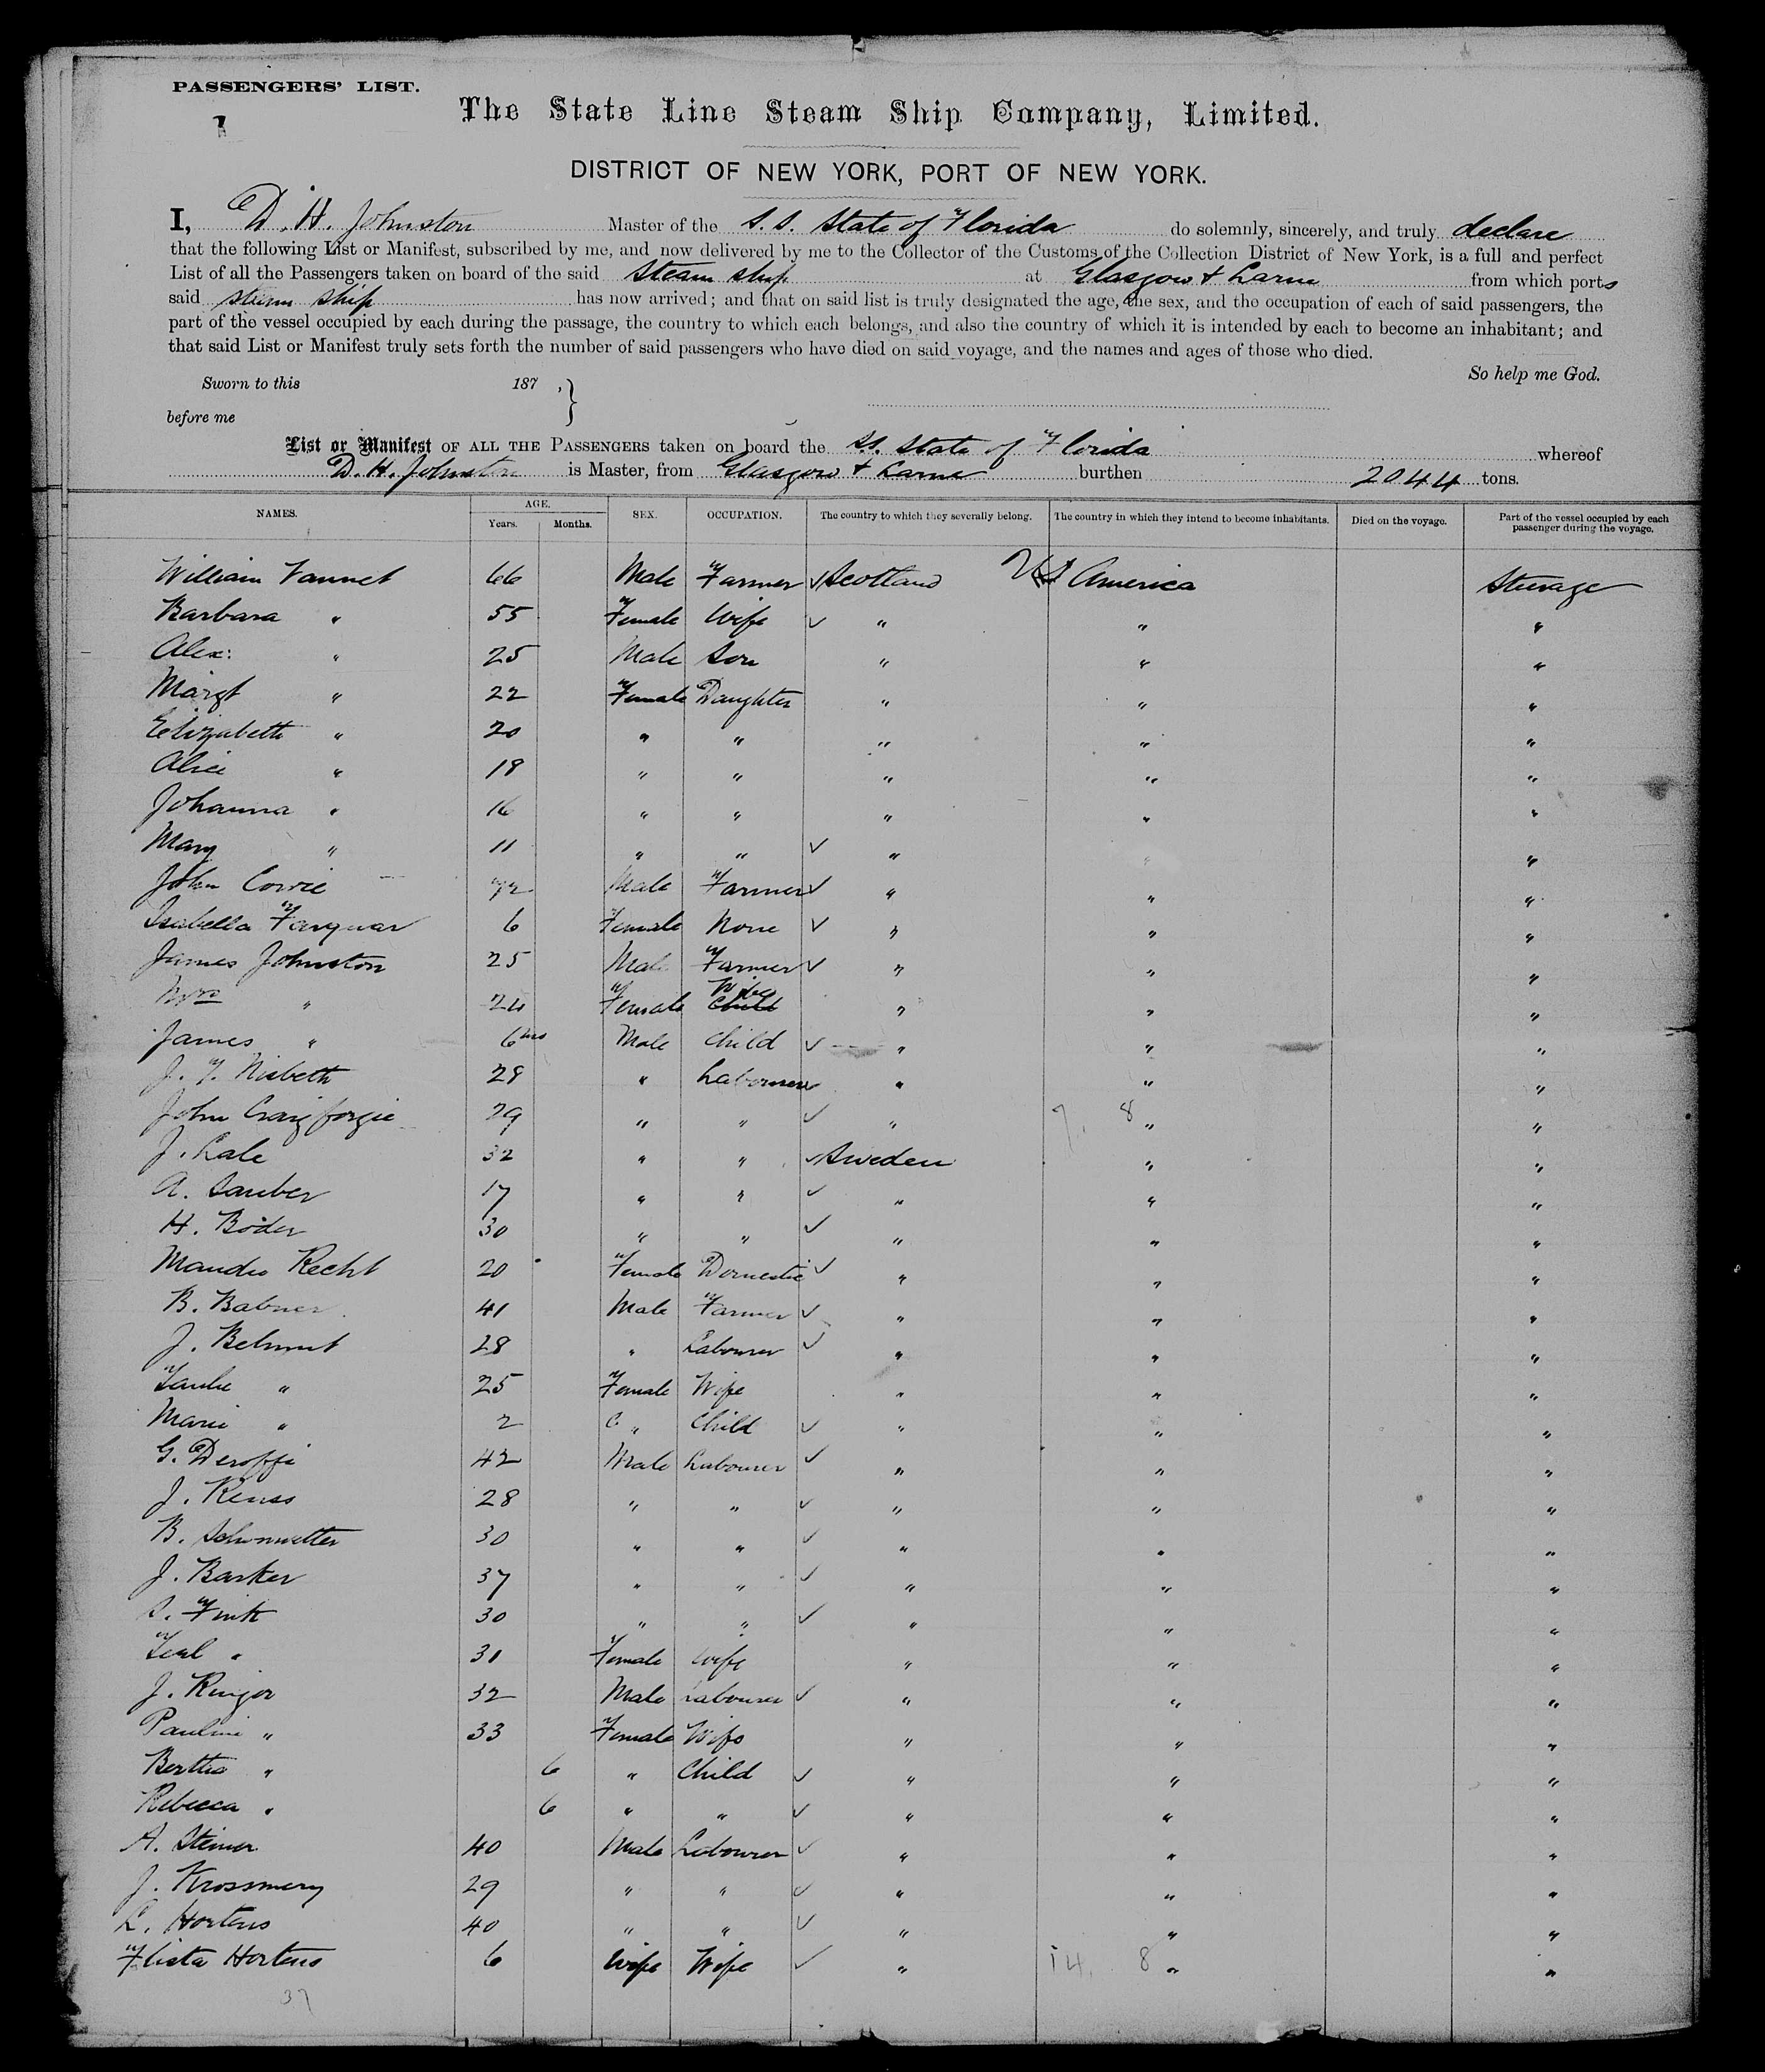 PASSENGERS' LIST.
1
The State Line Steam Ship Company, Limited.
DISTRICT OF NEW YORK, PORT OF NEW YORK.
I, D. H. Johnston Master of the S.S. State of Florida do solemnly, sincerely, and truly declare
that the following List or Manifest, subscribed by me, and now delivered by me to the Collector of the Customs of the Collection District of New York, is a full and perfect
List of all the Passengers taken on board of the said Steam ship at Glasgow & Larne from which ports
said steam ship has now arrived; and that on said list is truly designated the age, the sex, and the occupation of each of said passengers, the
part of the vessel occupied by each during the passage, the country to which each belongs, and also the country of which it is intended by each to become an inhabitant; and
that said List or Manifest truly sets forth the number of said passengers who have died on said voyage, and the names and ages of those who died.
So help me God.
Sworn to this 187 , }
before me
List or Manifest OF ALL THE PASSENGERS taken on board the S.S. State of Florida whereof
D. H. Johnston is Master, from Glasgow & Larne burthen 2044 tons.
NAMES. AGE. Years. Months. SEX. OCCUPATION. The country to which they severally belong. The country in which they intend to become inhabitants. Died on the voyage. Part of the vessel occupied by each passenger during the voyage.
William Vannet 66 Male Farmer Scotland US America Steerage
Barbara " 55 Female Wife " " "
Alex: " 25 Male Son " " "
Margt " 22 Female Daughter " " "
Elizabeth " 20 " " " " "
Alice " 18 " " " " "
Johanna " 16 " " " " "
Mary " 11 " " " " "
John Cowie 72 Male Farmer " " "
Isabella Farquar 6 Female None " " "
James Johnston 25 Male Farmer " " "
Mrs " 24 Female Wife Child " " "
James " 6 mos Male Child " " "
J. F. Nisbeth 28 " Labourer " " "
John Craigforgie 29 " " " 7. 8 " "
J. Lale 32 " " Sweden " "
A. Sauber 17 " " " " "
H. Böder 30 " " " " "
Recht 20 Female Domestic " " "
B. Babner 41 Male Farmer " " "
J. Belmut 28 " Labourer " " "
" 25 Female Wife " " "
Marie " 2 " Child " " "
G. 42 Male Labourer " " "
J. Reuss 28 " " " " "
B. Schonwetter 30 " " " " "
J. Barker 37 " " " " "
S. Fink 30 " " " " "
" 31 Female Wife " " "
J. 32 Male Labourer " " "
Pauline " 33 Female Wife " " "
Bertha " 6 " Child " " "
Rebecca " 6 " " " " "
A. Steiner 40 Male Labourer " " "
J. 29 " " " " "
L. Hortens 40 " " " " "
Hortens 6 Wife Wife " 14. 8 " "
37